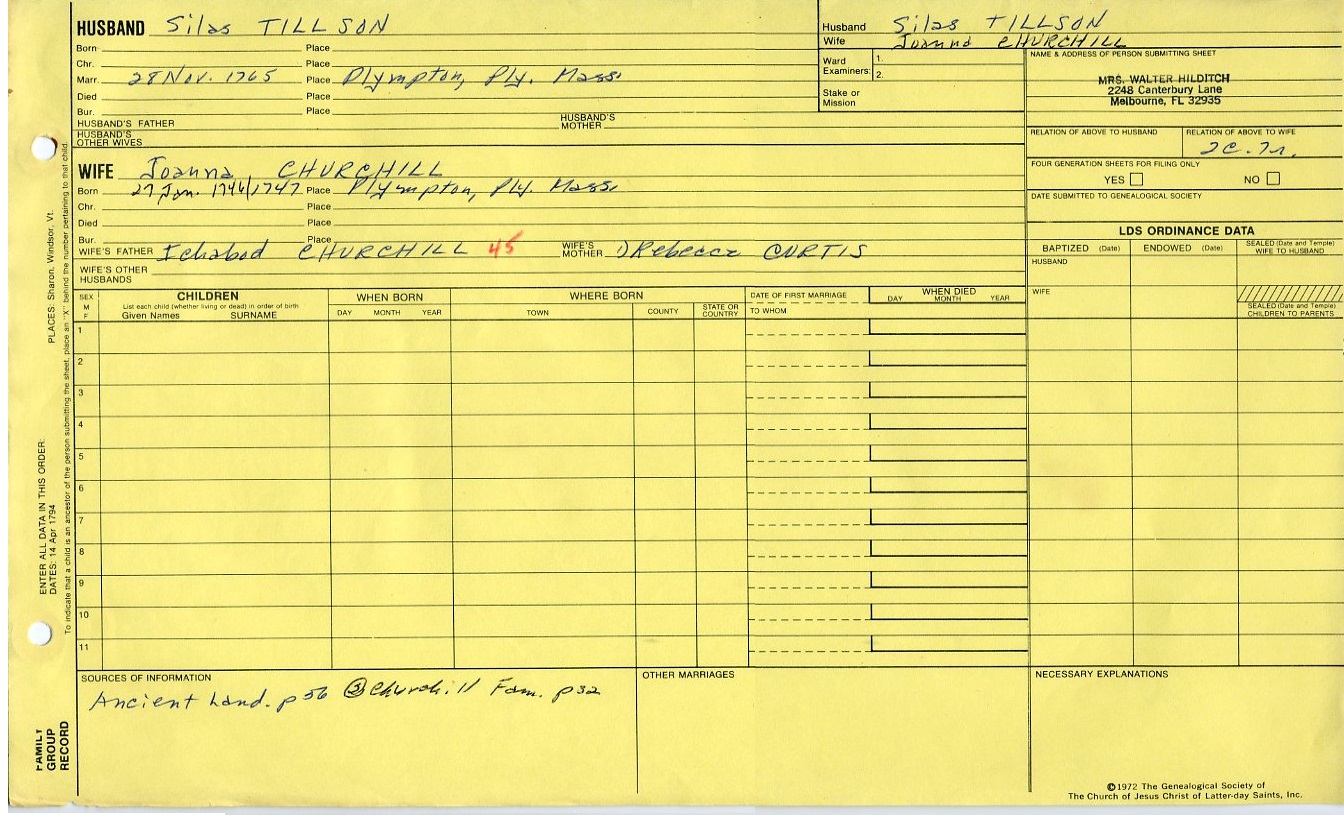 HUSBAND Silas TILLSON
Born Place
Chr. Place
Marr. 28 Nov. 1765 Place Plympton, Ply. Mass.
Died Place
Bur. Place
HUSBAND'S FATHER HUSBAND'S MOTHER
HUSBAND'S OTHER WIVES
Husband Silas TILLSON
Wife Joanna CHURCHILL
Ward Examiners: 1.
2.
Stake or Mission
NAME & ADDRESS OF PERSON SUBMITTING SHEET
MRS. WALTER HILDITCH
2248 Canterbury Lane
Melbourne, FL 32935
RELATION OF ABOVE TO HUSBAND RELATION OF ABOVE TO WIFE
2C.7r.
FOUR GENERATION SHEETS FOR FILING ONLY
YES NO
DATE SUBMITTED TO GENEALOGICAL SOCIETY
WIFE Joanna CHURCHILL
Born 27 Jan. 1746/1747 Place Plympton, Ply. Mass.
Chr. Place
Died Place
Bur. Place
WIFE'S FATHER Ichabod CHURCHILL 45 WIFE'S MOTHER 1) Rebecca CURTIS
WIFE'S OTHER HUSBANDS
LDS ORDINANCE DATA
BAPTIZED (Date) ENDOWED (Date) SEALED (Date and Temple) WIFE TO HUSBAND
HUSBAND
WIFE
SEALED (Date and Temple) CHILDREN TO PARENTS
SEX M F CHILDREN WHEN BORN WHERE BORN DATE OF FIRST MARRIAGE WHEN DIED
List each child (whether living or dead) in order of birth
Given Names SURNAME DAY MONTH YEAR TOWN COUNTY STATE OR COUNTRY TO WHOM DAY MONTH YEAR
1
2
3
4
5
6
7
8
9
10
11
SOURCES OF INFORMATION
Ancient Land. p 56 ③ Churchill Fam. p32
OTHER MARRIAGES
NECESSARY EXPLANATIONS
©1972 The Genealogical Society of
The Church of Jesus Christ of Latter-day Saints, Inc.
ENTER ALL DATA IN THIS ORDER:
DATES: 14 Apr 1794 PLACES: Sharon, Windsor, Vt.
To indicate that a child is an ancestor of the person submitting the sheet, place an "X" behind the number pertaining to that child.
FAMILY
GROUP
RECORD